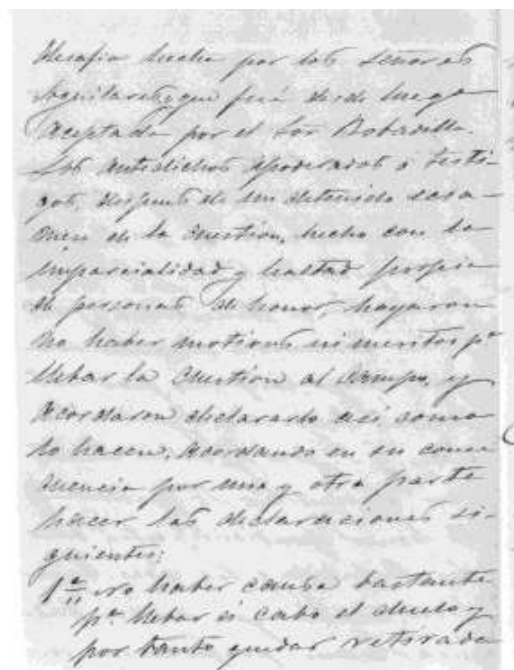 desafio hecho por los Señores
Aguilares, y que fué desde luego
aceptado por el Sor Bobadilla.
Los antedichos apoderados o testi-
gos, despues de un detenido exa-
men de la cuestion, hecho con la
imparcialidad y lealtad propia
de personas de honor, hayaron
no haber motivos ni meritos pª
llebar la cuestion al campo, y
acordaron declararlo asi como
lo hacen, acordando en su conse
cuencia por una y otra parte
hacer las declaraciones si-
guientes:
1ª no haber causa bastante
pª llebar á cabo el duelo y
por tanto quedar retirada